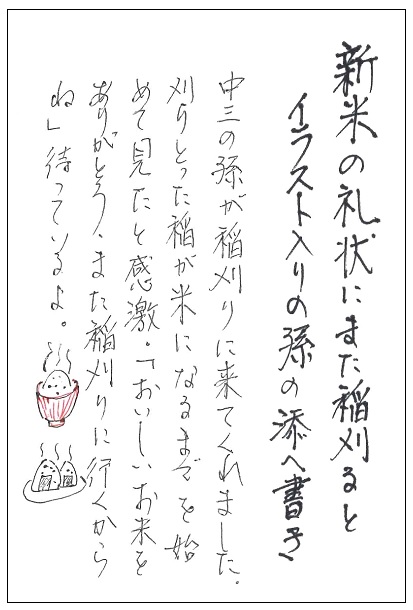 新米の礼状にまた稲刈ると
イラスト入りの孫の添へ書き
中三の孫が稲刈りに来てくれました。
刈りとった稲が米になるまでを始
めて見たと感激。「おいしいお米を
ありがとう、また稲刈りに行くから
ね」待っているよ。